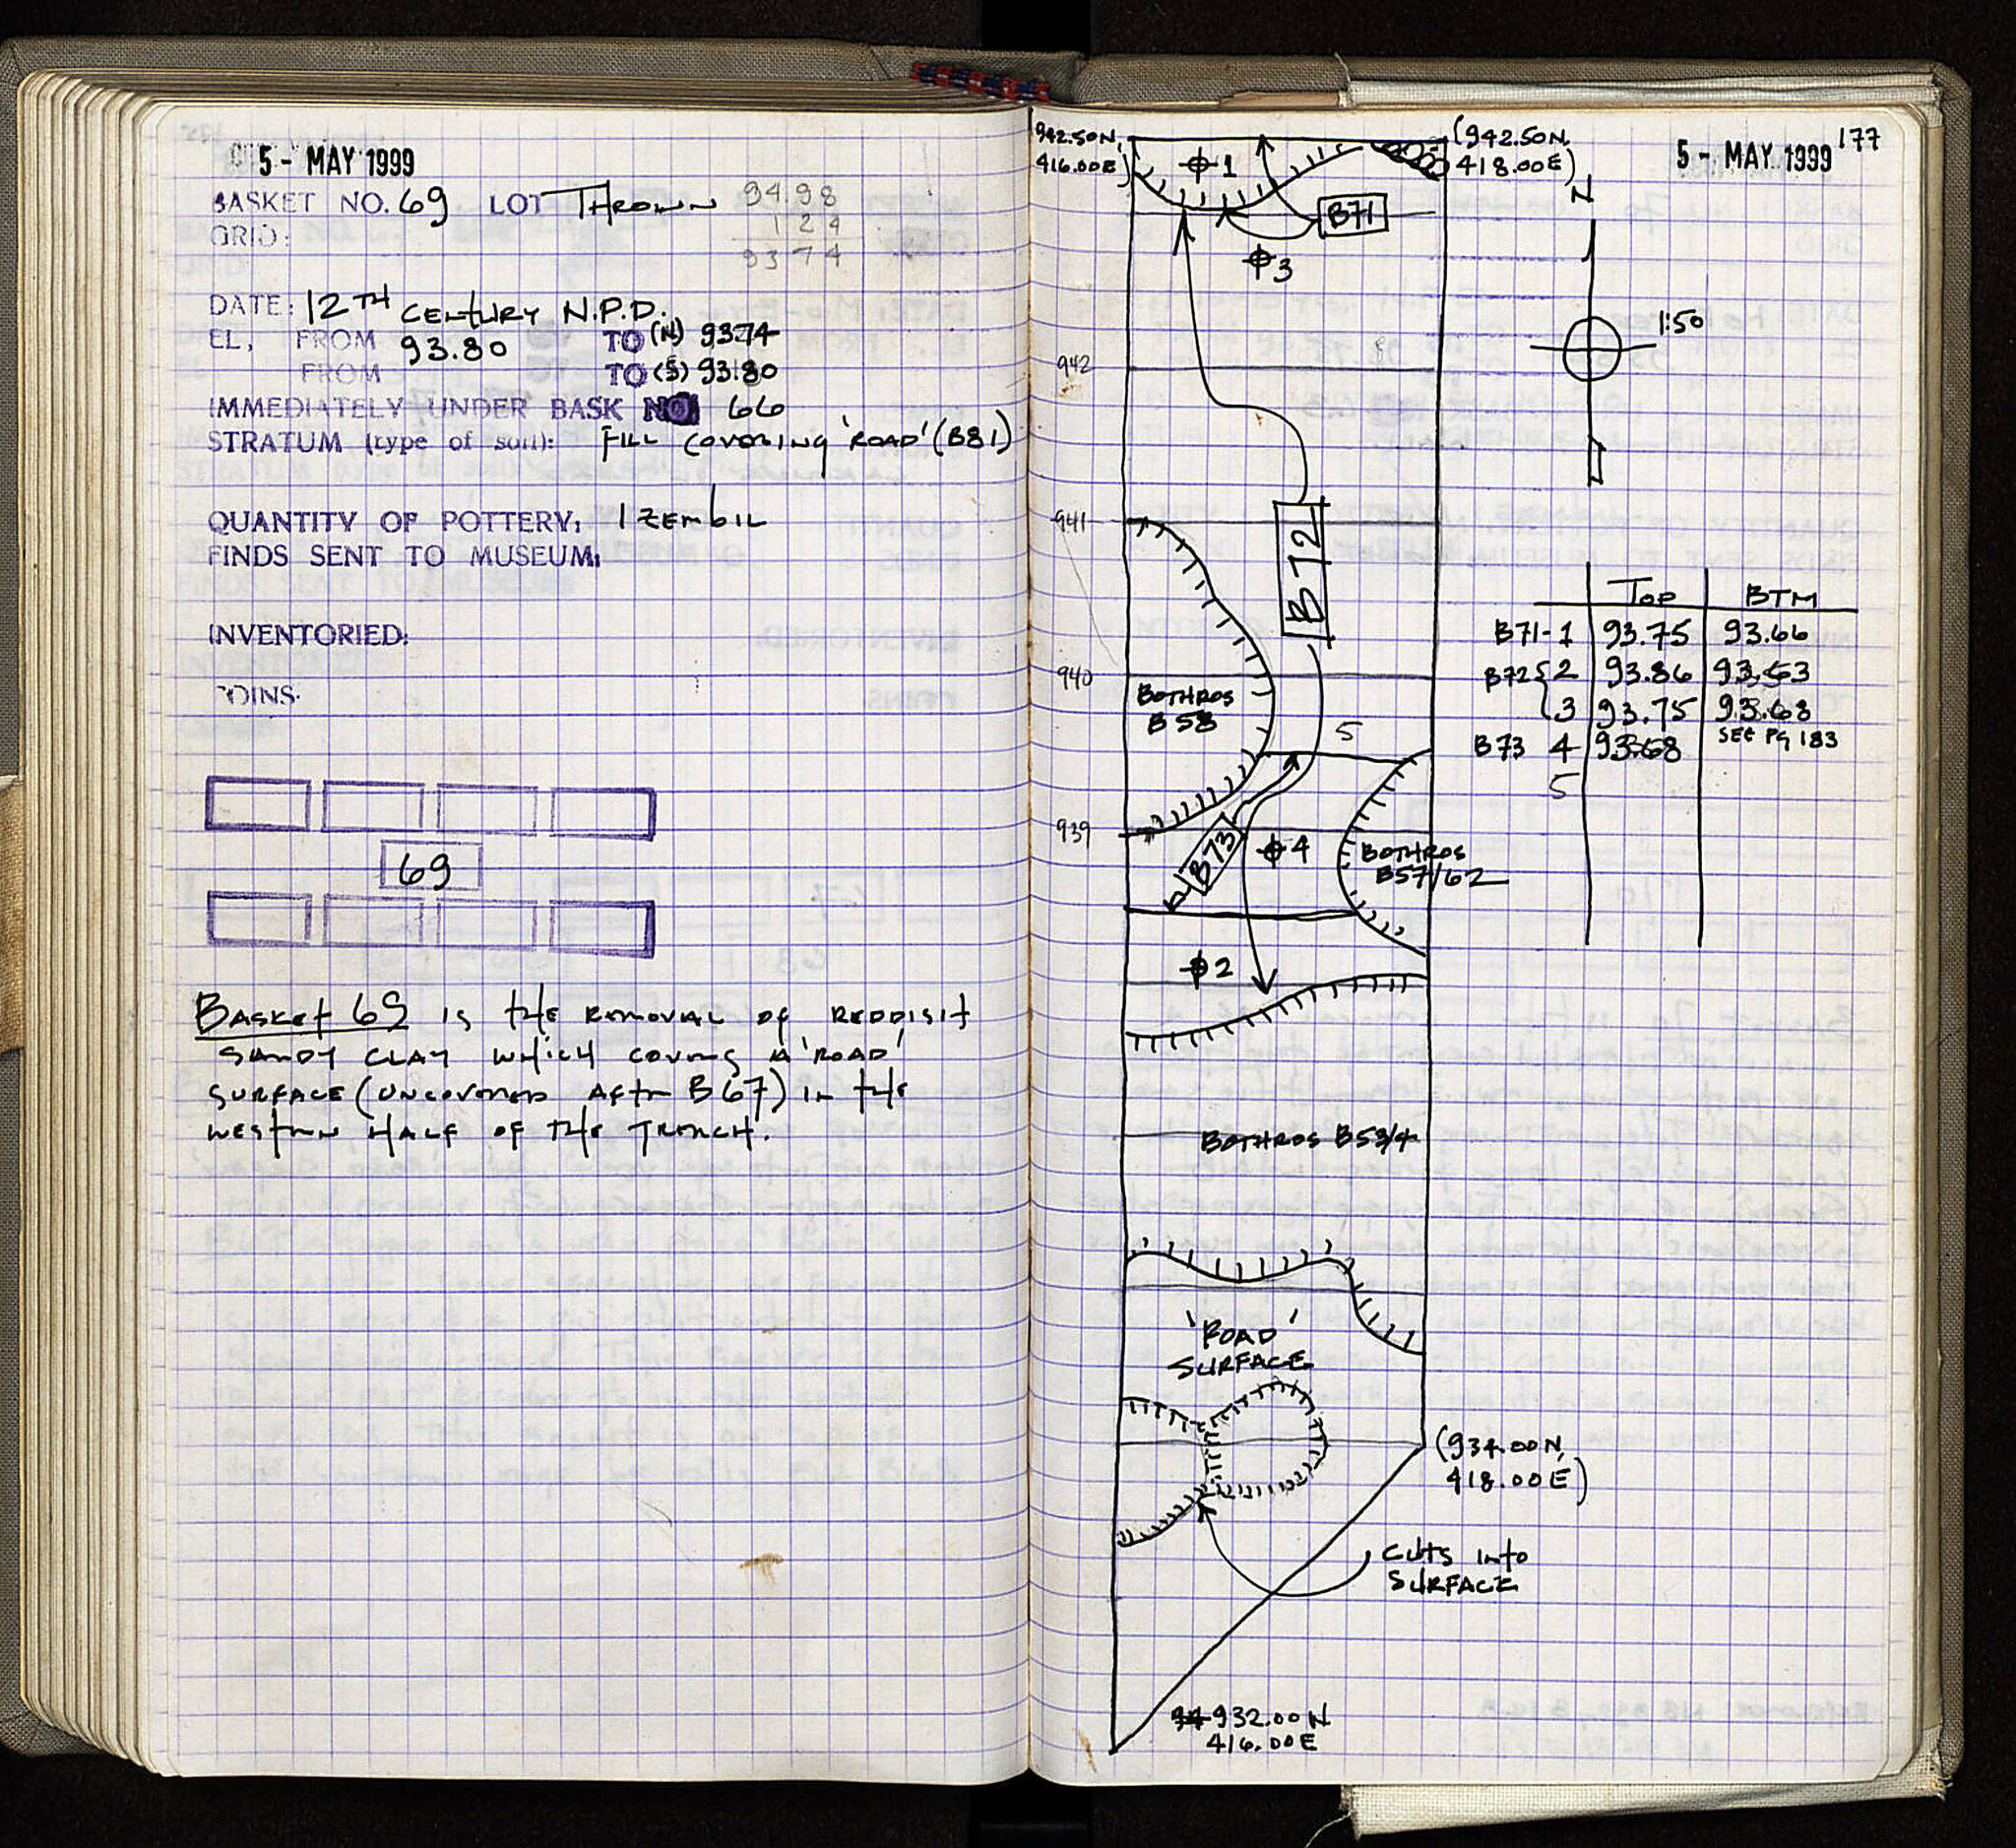 5 - MAY 1999
BASKET NO. 69 LOT THROWN
GRID:
94.98
1 24
93 74
DATE: 12TH CENTURY N.P.D.
EL, FROM 93.80 TO (N) 93.74
FROM TO (S) 93.80
IMMEDIATELY UNDER BASK NO 66
STRATUM (type of soil): FILL COVERING 'ROAD' (B81)
QUANTITY OF POTTERY: 1 ZEMBIL
FINDS SENT TO MUSEUM:
INVENTORIED:
COINS.
69
BASKET 69 IS THE REMOVAL OF REDDISH
SANDY CLAY WHICH COVERS A 'ROAD'
SURFACE (UNCOVERED AFTER B67) IN THE
WESTERN HALF OF THE TRENCH.
177
5 - MAY 1999
942.50N,
416.00E)
(942.50N,
418.00E)
N
1:50
1
B71
3
942
941
B72
940
BOTHROS
B58
5
939
B73
4
BOTHROS
B57/62
2
BOTHROS B53/4
'ROAD'
SURFACE
(934.00N,
418.00E)
CUTS INTO
SURFACE
932.00N
416.00E
TOP BTM
B71-1 93.75 93.66
B72 { 2 93.86 93.63
3 93.75 93.68
B73 4 93.68 SEE PG 183
5